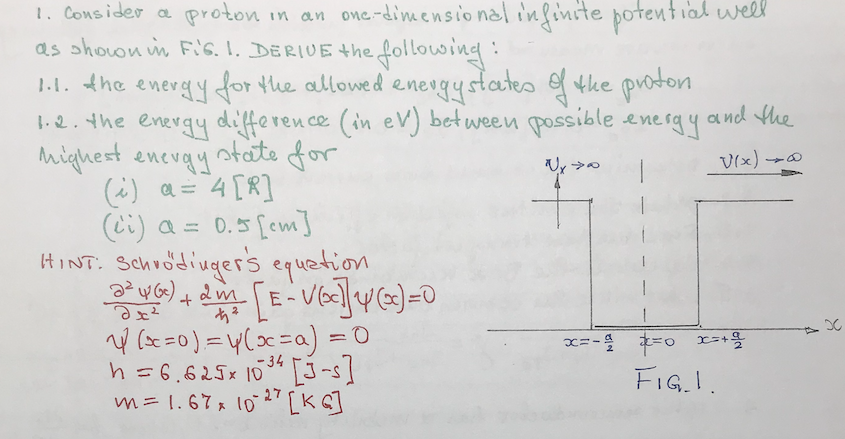 1. Consider a proton in an one-dimensional infinite potential well
as shown in FIG. 1. DERIVE the following:
1.1. the energy for the allowed energy states of the proton
1.2. the energy difference (in eV) between possible energy and the
highest energy state for
(i) a = 4 [Å]
(ii) a = 0.5 [cm]
HINT: Schrödinger's equation
∂²ψ(x)/∂x² + 2m/ħ² [E - V(x)] ψ(x) = 0
ψ(x=0) = ψ(x=a) = 0
h = 6.625x 10^-34 [J-s]
m = 1.67x 10^-27 [KG]
Vx → ∞
V(x) → ∞
x = -a/2
x=0
x=+a/2
x
FIG. 1.